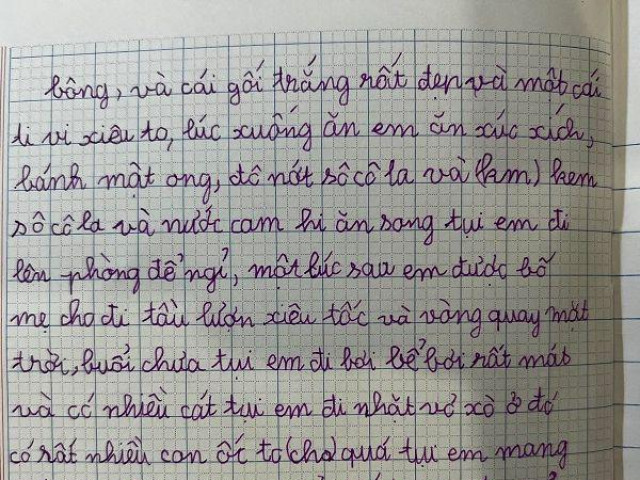 bông, và cái gối trắng rất đẹp và một cái
ti vi xiêu to, lúc xuống ăn em ăn xúc xích,
bánh mật ong, đô nát sôcôla và (kem) kem
sôcôla và nước cam hi ăn song tụi em đi
lên phòng để ngỉ, một lúc sau em được bố
mẹ cho đi tầu lượn xiêu tốc và vòng quay mặt
trời, buổi chưa tụi em đi bơi bể bơi rất mát
và có nhiều cát tụi em đi nhặt vỏ xò ở đó
có rất nhiều con ốc to (cha) quá tụi em mang